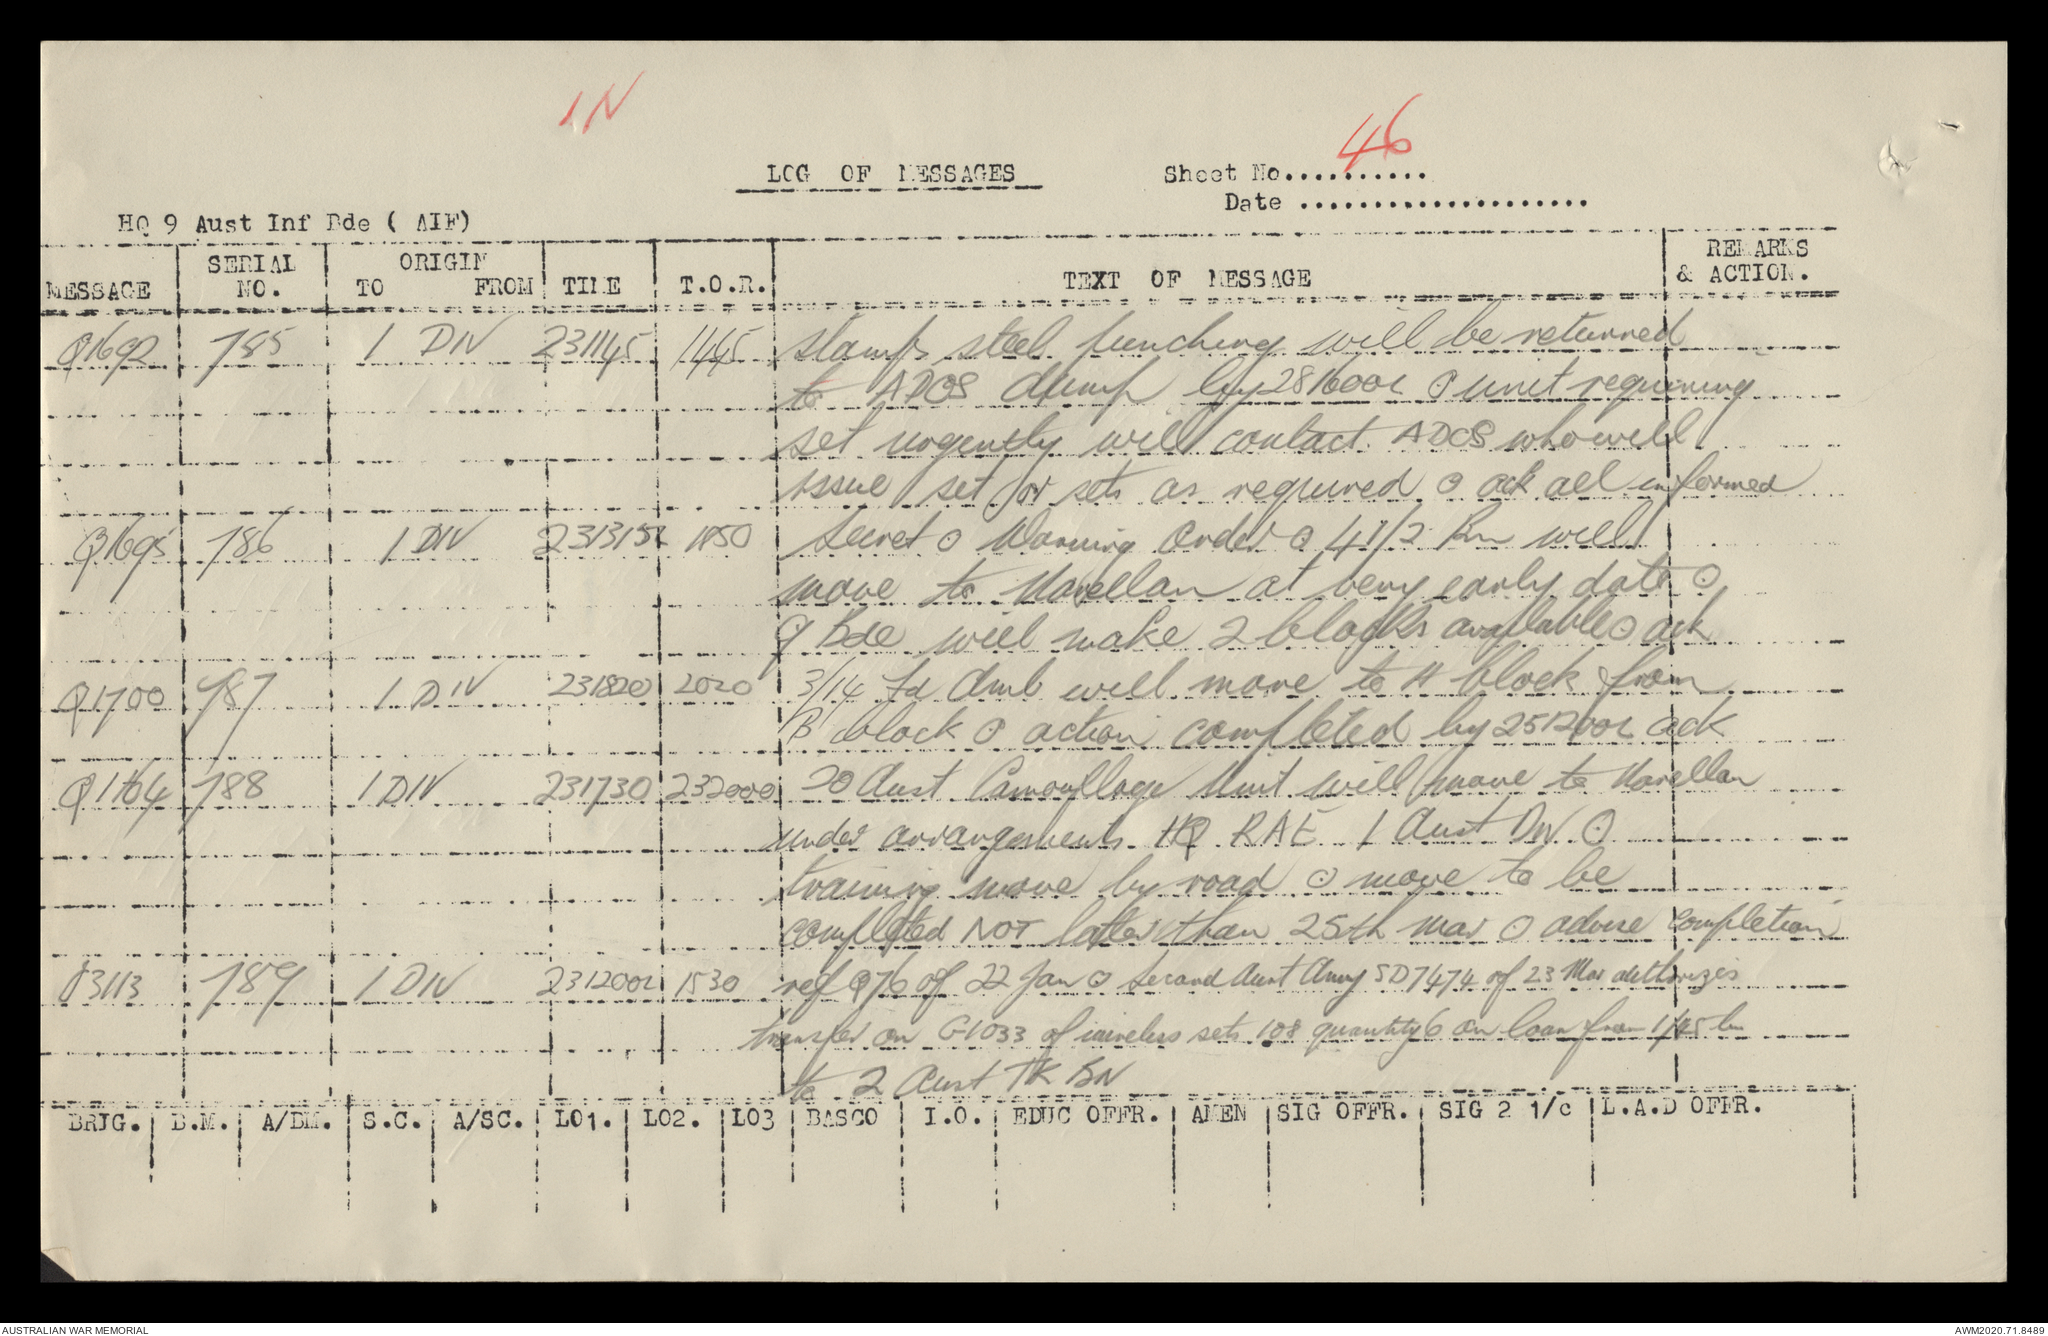 IN
46
LOG OF MESSAGES
Sheet No..........
Date ....................
HQ 9 Aust Inf Bde ( AIF)
MESSAGE SERIAL NO. ORIGIN TO FROM TIME T.O.R. TEXT OF MESSAGE REMARKS & ACTION.
Q1692 785 1 DIV 231145 1445 stamps steel punching will be returned
to ADOS dump by 281600L ⊙ unit requiring
set urgently will contact ADOS who will
issue set or sets as required ⊙ ack all informed
Q1695 786 1 DIV 231315L 1850 Secret ⊙ Warning order ⊙ 41/2 Bn will
move to at very early date ⊙
9 Bde will make 2 blocks available ⊙ ack
Q1700 787 1 DIV 231820 2020 3/14 Fd Amb will move to H block from
B block ⊙ action completed by 251200L ack
Q1704 788 1 DIV 231730 232000 20 Aust Camouflage Unit will move to
under arrangements HQ RAE 1 Aust Div ⊙
training move by road ⊙ move to be
completed NOT later than 25th Mar ⊙ advise completion
789 1 DIV 231200L 1530 ref Q76 of 22 Jan ⊙ Second Aust Army SD7474 of 23 Mar authorizes
transfer on G1033 of wireless sets 108 quantity 6 on loan from 1/45 bn
to 2 Aust TK BN
BRIG. B.M. A/BM. S.C. A/SC. LO1. LO2. LO3 BASCO I.O. EDUC OFFR. AMEN SIG OFFR. SIG 2 1/c L.A.D OFFR.
AUSTRALIAN WAR MEMORIAL
AWM2020.71.8489